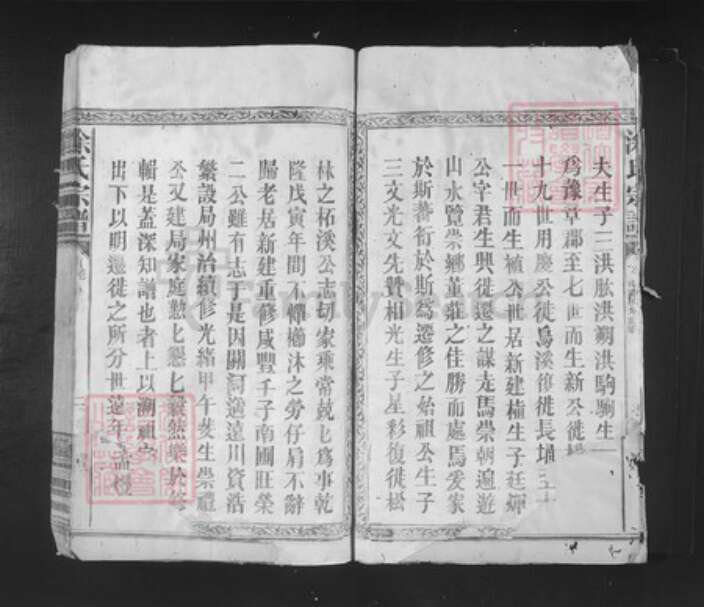 夫生子三洪肱洪朔洪駒駒生
為豫章郡至七世而生新公徙
十九世用慶公徙烏溪復徙長堎
一世而生植公世居新建植生子廷輝
公字君生興徙遷之謀走馬崇朝遍遊
山水覽崇鄉董莊之佳勝而處焉爰家
於斯蕃衍於斯為遷修之始祖公生子
三文光文先贊相光生子星彩復徙松
林之柘溪公志切家乘常兢匕為事乾
隆戊寅年間不憚櫛沐之勞仔肩不辭
歸老居新建重修咸豐壬子南圃莊榮
二公雖有志于是因關河遙遠川資浩
繁設局州治續修光緒甲午葵生崇禮
公又建局家庭懃匕懇匕毅然樂於
輯是蓋深知譜也者上以溯祖宗
出下以明遷徙之所分世遠年
涂氏宗譜
涂氏宗譜